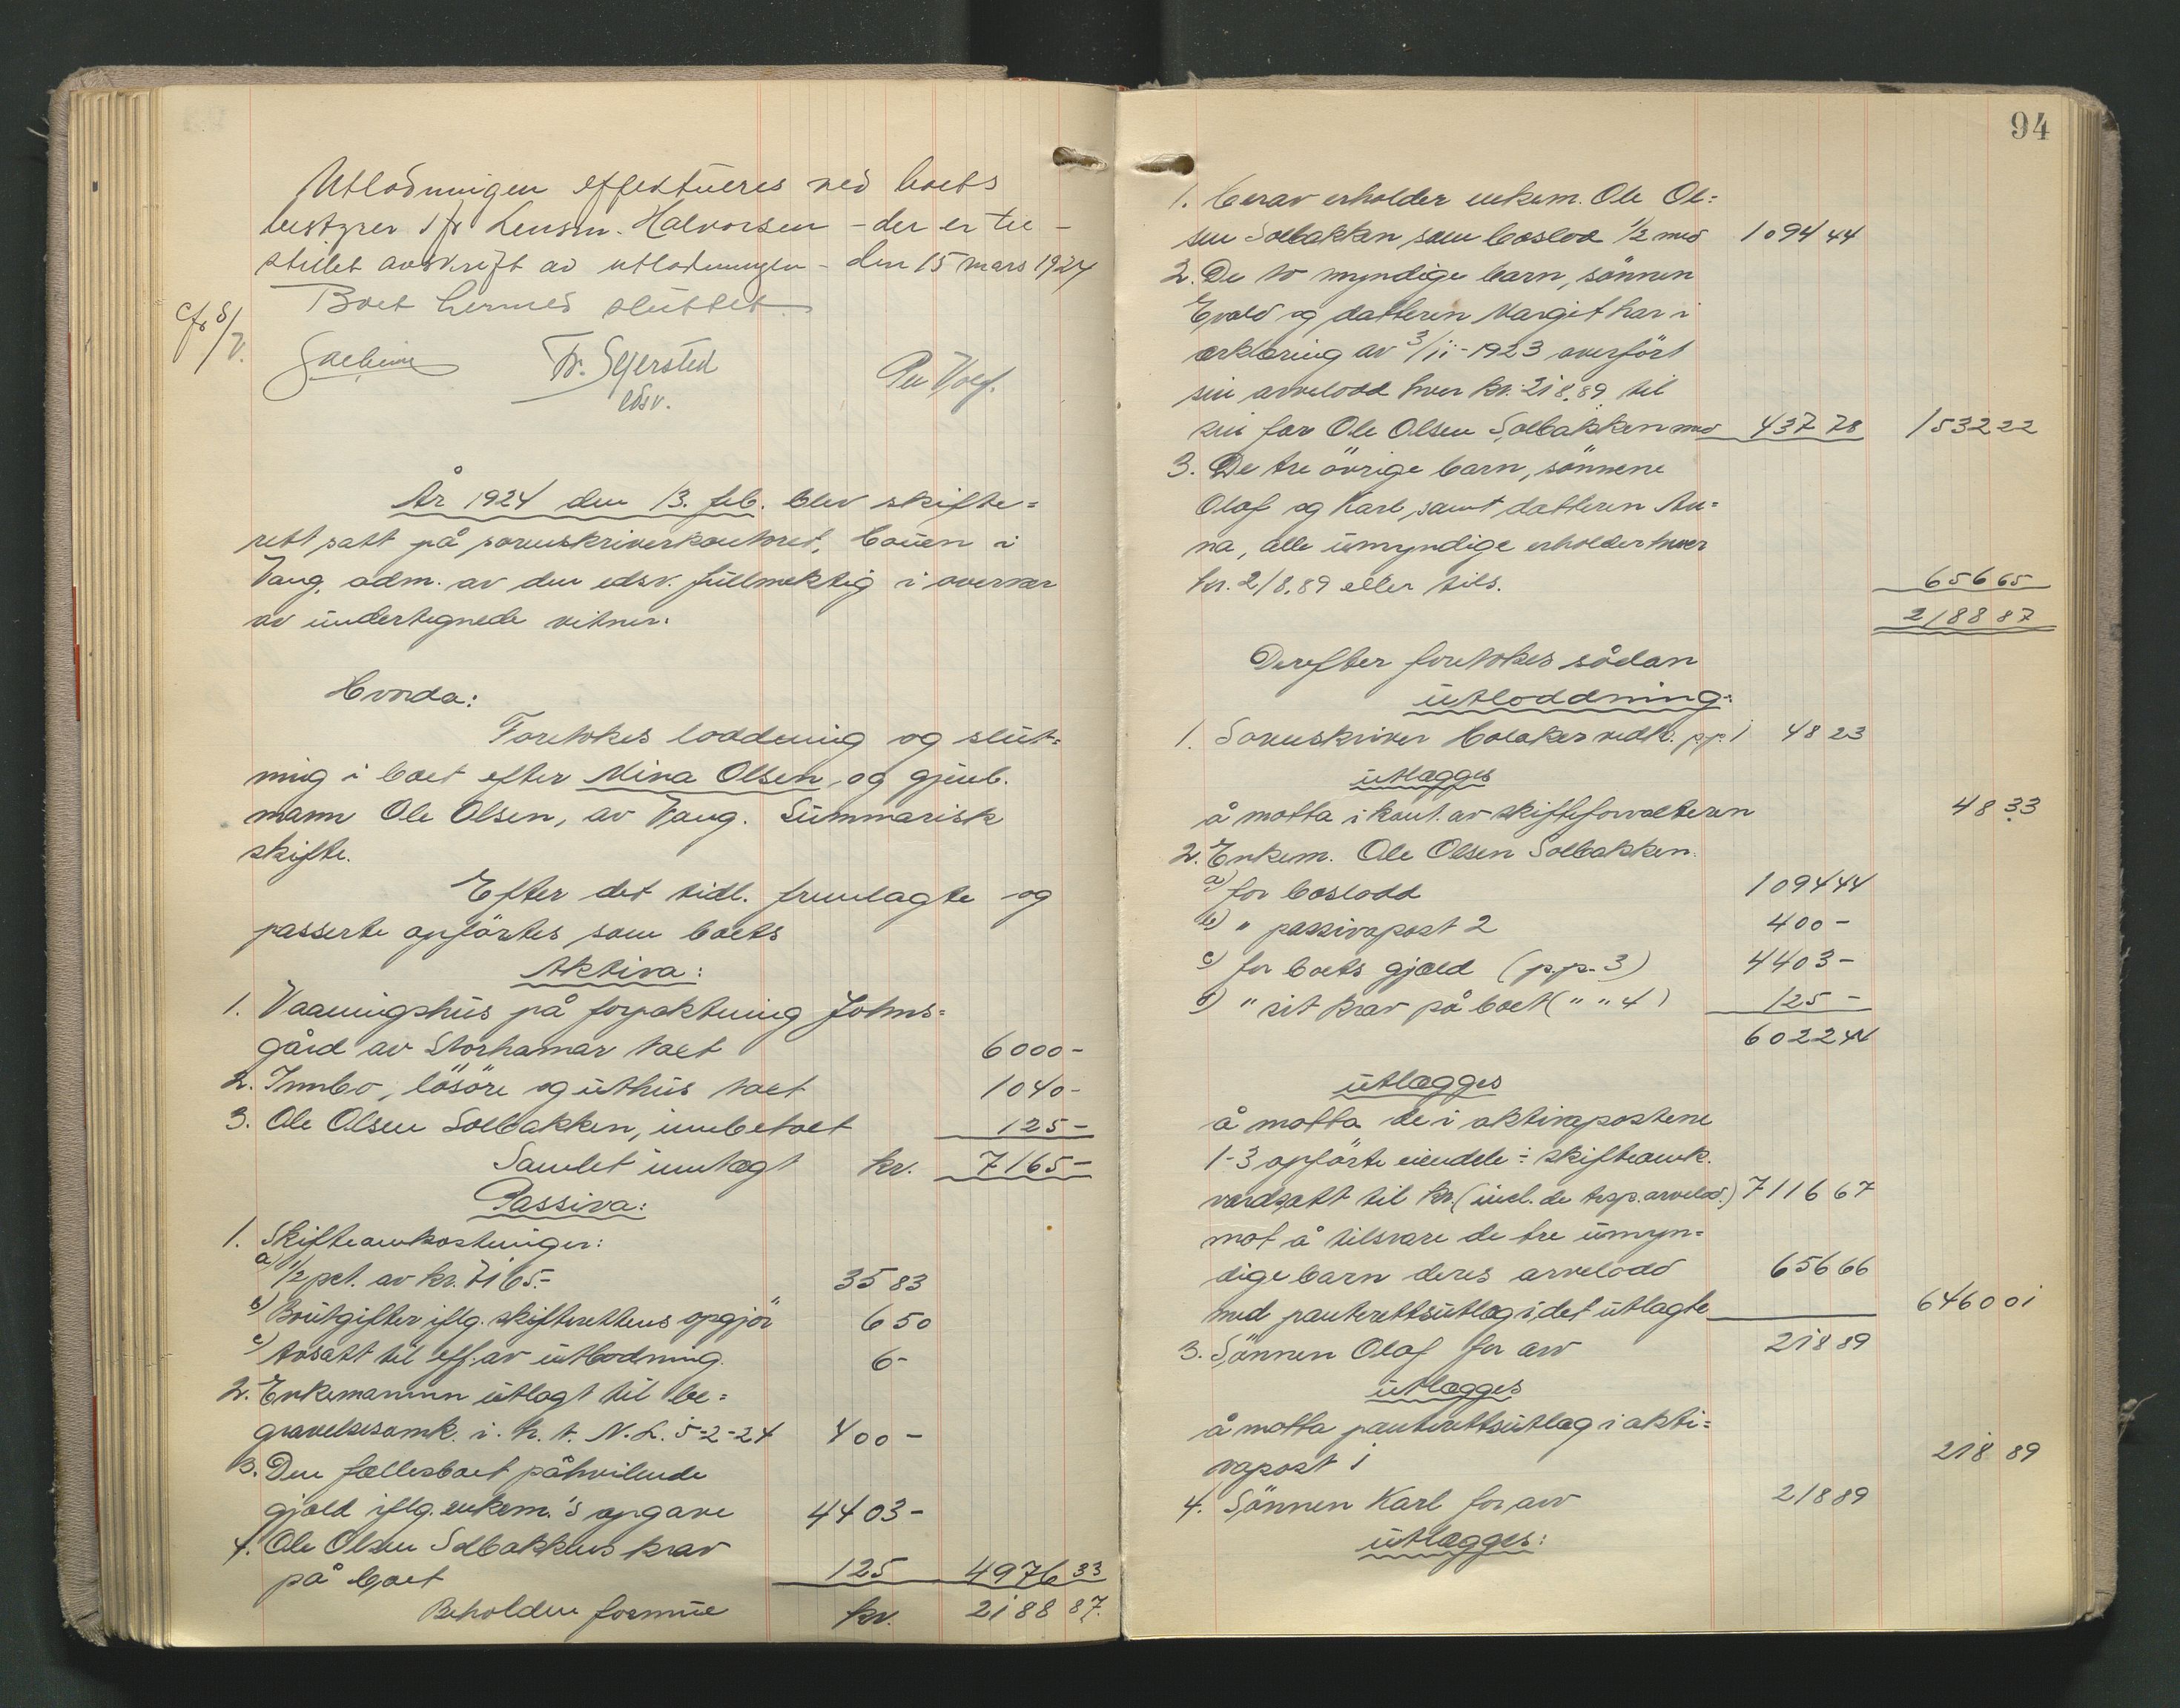 Utlodningen effektueres ved boets
bestyrer d fr Lensm. Halvorsen - der er til-
stillet avskrift av utlodningen - den 15 mars 1924
Boet hermed sluttet.
Fr. Segersted
edsv.
Per Volf.
År 1924 den 13. feb. blev skifte=
rett satt på sorenskriverkontoret, Coüen i
Vang, adm. av den edsv. füllmektig i overvær
av ündertegnede vitner.
Hvorda:
Foretokes loddning og slüt=
ning i boet efter Mina Olsen og gjenl.
mann Ole Olsen, av Vang. Sümmarisk
skifte.
Efter det tidl. fremlagte og
passerte opförtes som boets
Aktiva:
1. Vaaningshüs på forpaktning Johns=
gård av Storhamar taxt 6000-
2. Innbo, lösöre og üthüs taxt 1040-
3. Ole Olsen Solbakken, innbetalt 125-
Samlet inntægt kr. 7165-
Passiva:
1. Skifteomkostninger:
a) 1/2 pct. av kr. 7165.- 35 83
b) Boütgifter iflg. skifterettens opgjör 6 50
c) Avsatt til eff. av ütlodning. 6-
2. Enkemannen ütlagt til be=
gravelsesomk. i. h. t. N. L. 5-2-24 400-
3. Den fællesboet påhvilende
gjæld iflg. enkem.'s opgave 4403-
4. Ole Olsen Solbakkens krav
på boet 125 4976 33
Beholden formüe kr. 2188 87.
94
1. Herav erholder enkem. Ole Ol=
sen Solbakken som boslod 1/2 med 1094 44
2. De to myndige barn, sönnen
Evald og datteren Margit har i
erklæring av 3/11-1923 overfört
sin arvelodd hver kr. 218.89 til
sin far Ole Olsen Solbakken med 437 78 1532 22
3. De tre övrige barn, sönnene
Olaf og Karl, samt datteren An=
na, alle ümyndige erholder hver
kr. 218.89 eller tils. 656 65
2188 87
Derefter foretokes sådan
ütloddning:
1. Sorenskriver Holaker vedk. pp. 1 48 23
ütlægges
å motta i kont. av skifteforvalteren 48 33
2. Enkem. Ole Olsen Solbakken.
a) for boslodd 1094 44
b) " passivapost 2 400-
c) for boets gjæld (p.p. 3) 4403-
d) " sit krav på boet (" " 4) 125-
6022 44
ütlægges
å motta de i aktivapostene
1-3 opförte eiendele ÷ skifteomk.
verdsatt til kr. (incl. de trsp. arvelod.) 7116 67
mot å tilsvare de tre ümyn=
dige barn deres arvelodd 656 66
med panterettsütlæg i det ütlagte 6460 01
3. Sönnen Olaf for arv 218 89
ütlægges
å motta panterettsütlæg i akti=
vapost 1 218 89
4. Sönnen Karl for arv 218 89
ütlægges: